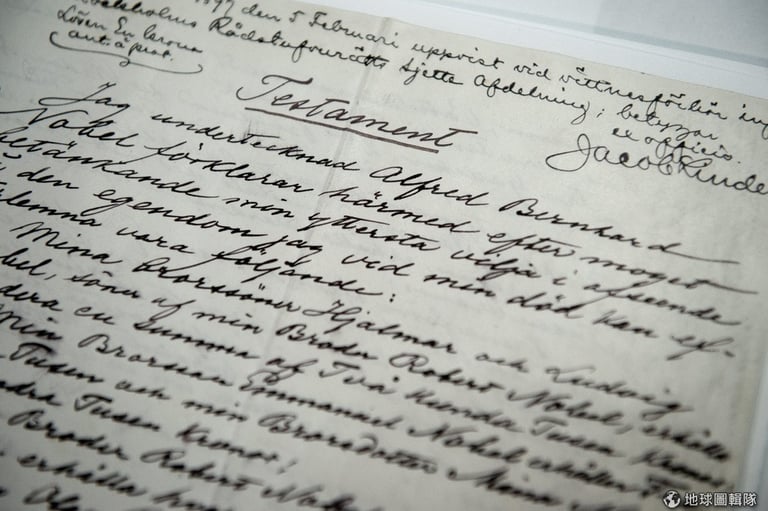 1897 den 5 Februari uppvist vid vittnesförhör inf
Stockholms Rådstufvurätts sjette Afdelning; betygar
Lösen En krona
ex officio.
Jacob
Testament
Jag undertecknad Alfred Bernhard
Nobel förklarar härmed efter moget
betänkande min yttersta vilja i afseende
å den egendom jag vid min död kan ef-
terlemna vara följande:
Mina Brorssöner Hjalmar och Ludvig
Nobel, söner af min Broder Robert Nobel, erhålla
en Summa af Två Hundra Tusen Kronor
Min Brorsson Emmanuel Nobel erhåller
Tusen och min Brorsdotter Mina
dra Tusen Kronor;
Broder Robert Nobels
erhålla
地球圖輯隊